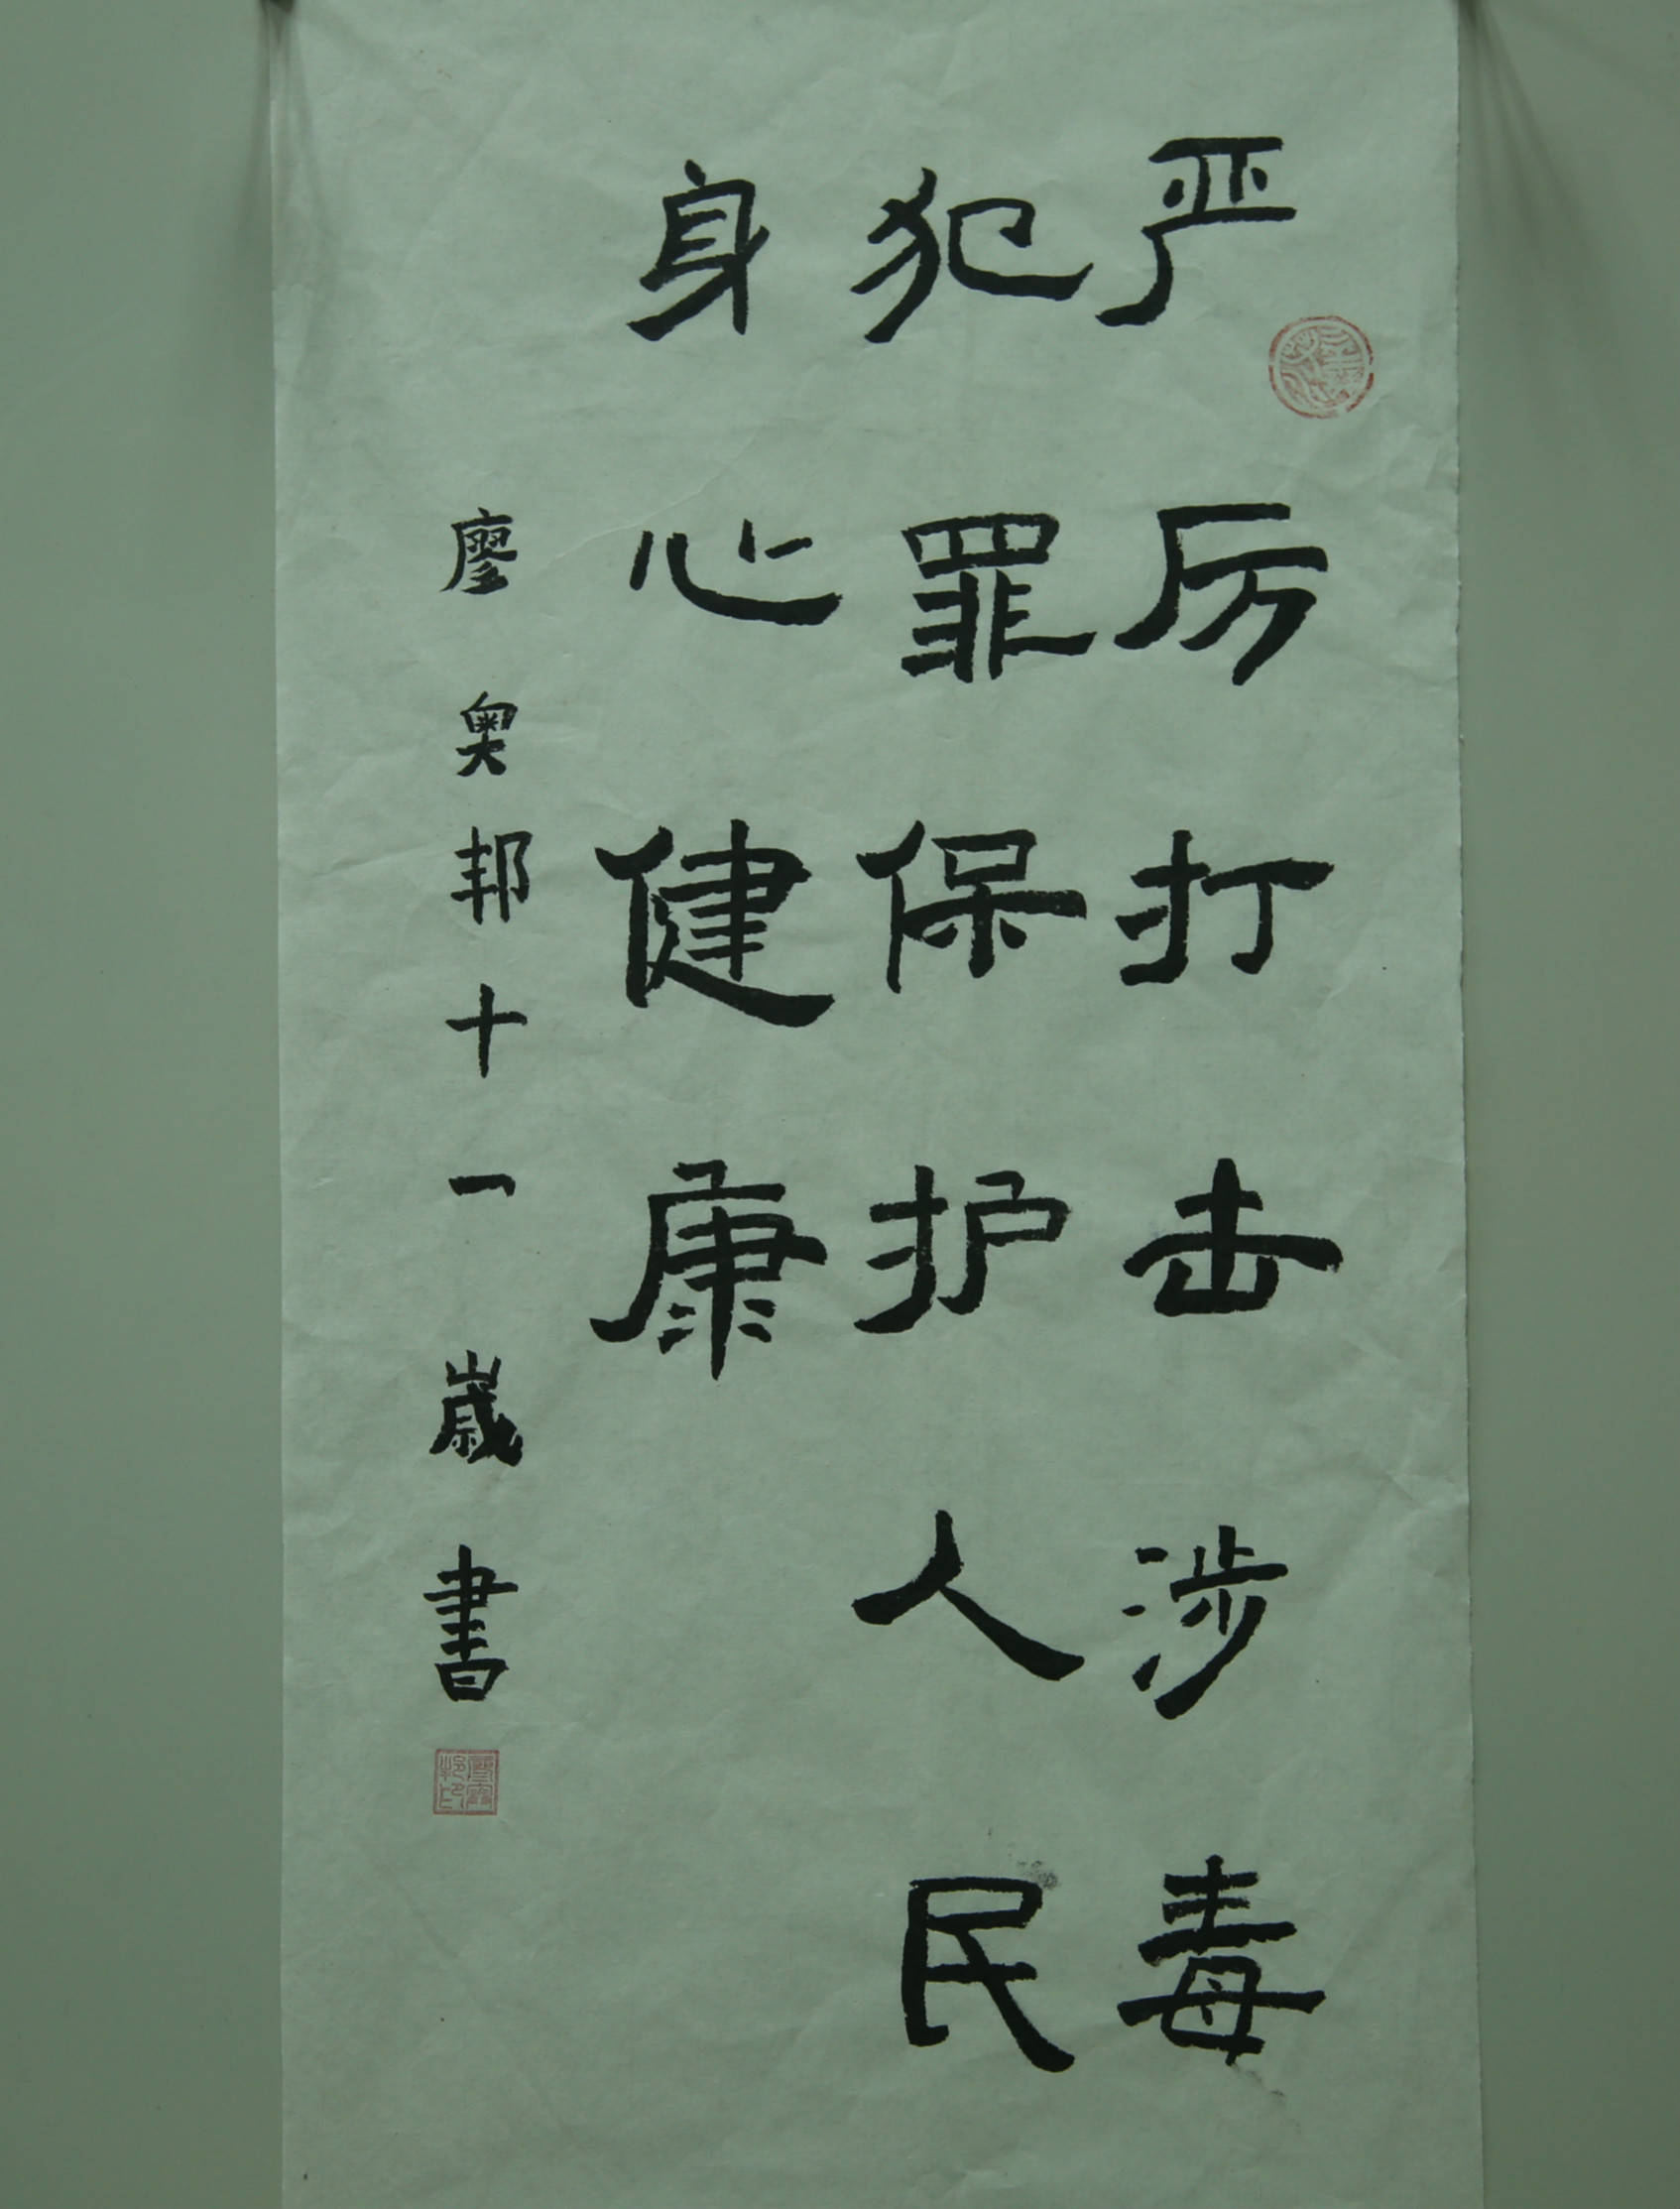 严厉打击涉毒
犯罪保护人民
身心健康
廖奥邦十一歲書